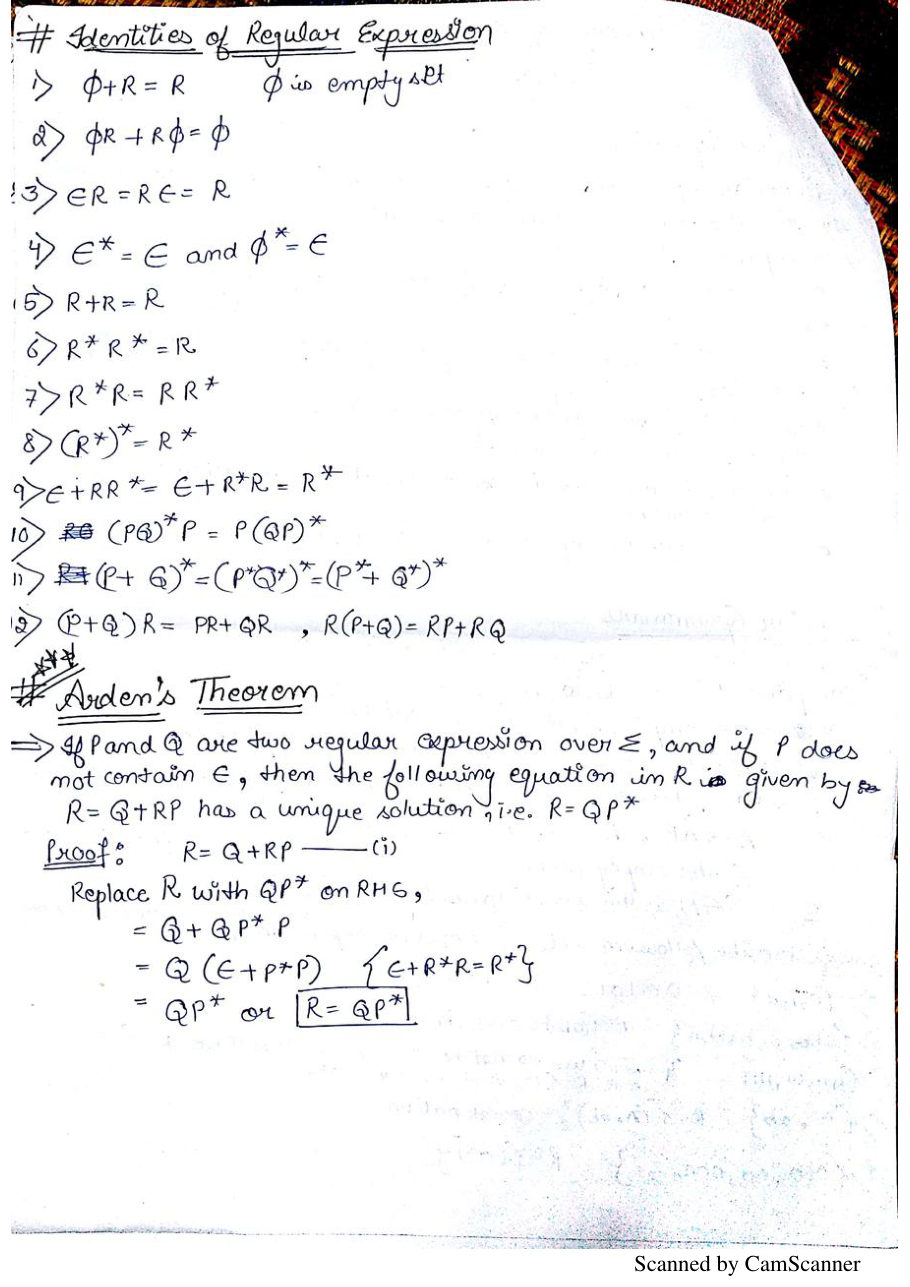 # Identities of Regular Expression
1) ϕ+R = R ϕ is empty set
2) ϕR + Rϕ = ϕ
3) ∈R = R∈ = R
4) ∈* = ∈ and ϕ* = ∈
5) R+R = R
6) R* R* = R
7) R*R = RR*
8) (R*)* = R*
9) ∈+RR* = ∈+R*R = R*
10) (PQ)*P = P(QP)*
11) (P+Q)* = (P*Q*)* = (P*+Q*)*
12) (P+Q)R = PR+QR , R(P+Q) = RP+RQ
***
# Arden's Theorem
⇒ If P and Q are two regular expression over Σ, and if P does
not contain ∈, then the following equation in R is given by
R = Q+RP has a unique solution, i.e. R = QP*
Proof: R = Q+RP —— (i)
Replace R with QP* on RHS,
= Q + QP* P
= Q (∈+P*P) {∈+R*R=R*}
= QP* or R = QP*
Scanned by CamScanner